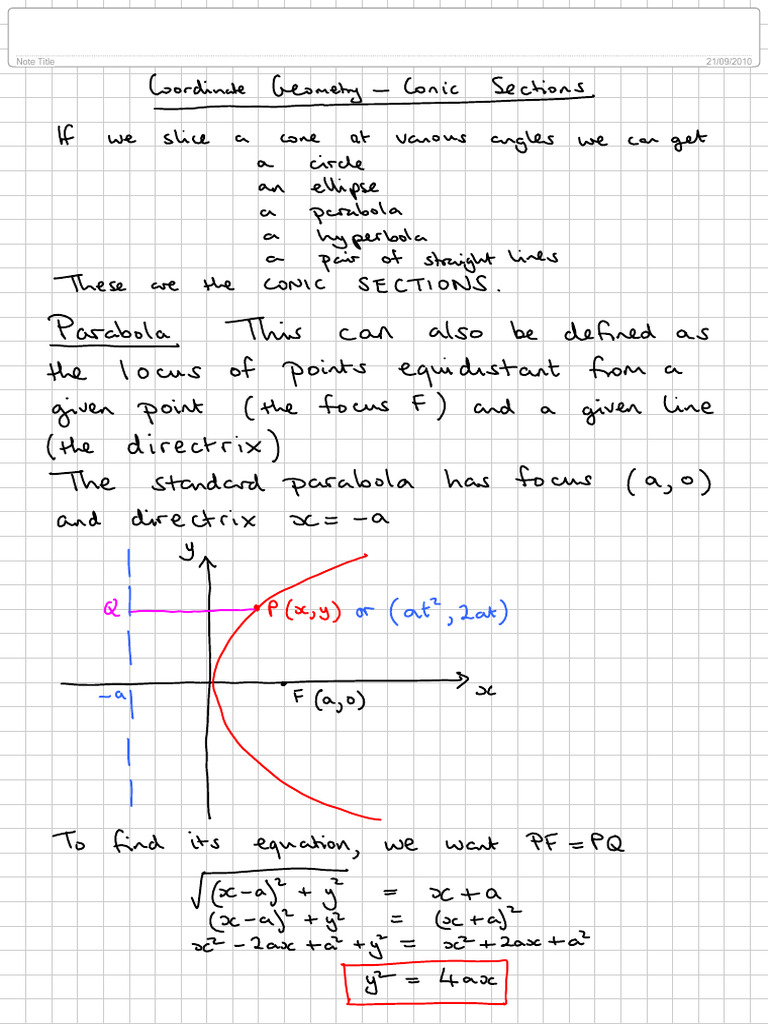 Note Title
21/09/2010
Coordinate Geometry – Conic Sections
If we slice a cone at various angles we can get
a circle
an ellipse
a parabola
a hyperbola
a pair of straight lines
These are the CONIC SECTIONS.
Parabola This can also be defined as
the locus of points equidistant from a
given point (the focus F) and a given line
(the directrix)
The standard parabola has focus (a, 0)
and directrix x = -a
y
Q
P(x,y) or (at², 2at)
-a
F (a,0)
x
To find its equation, we want PF = PQ
√((x-a)² + y²) = x + a
(x-a)² + y² = (x+a)²
x² - 2ax + a² + y² = x² + 2ax + a²
y² = 4ax